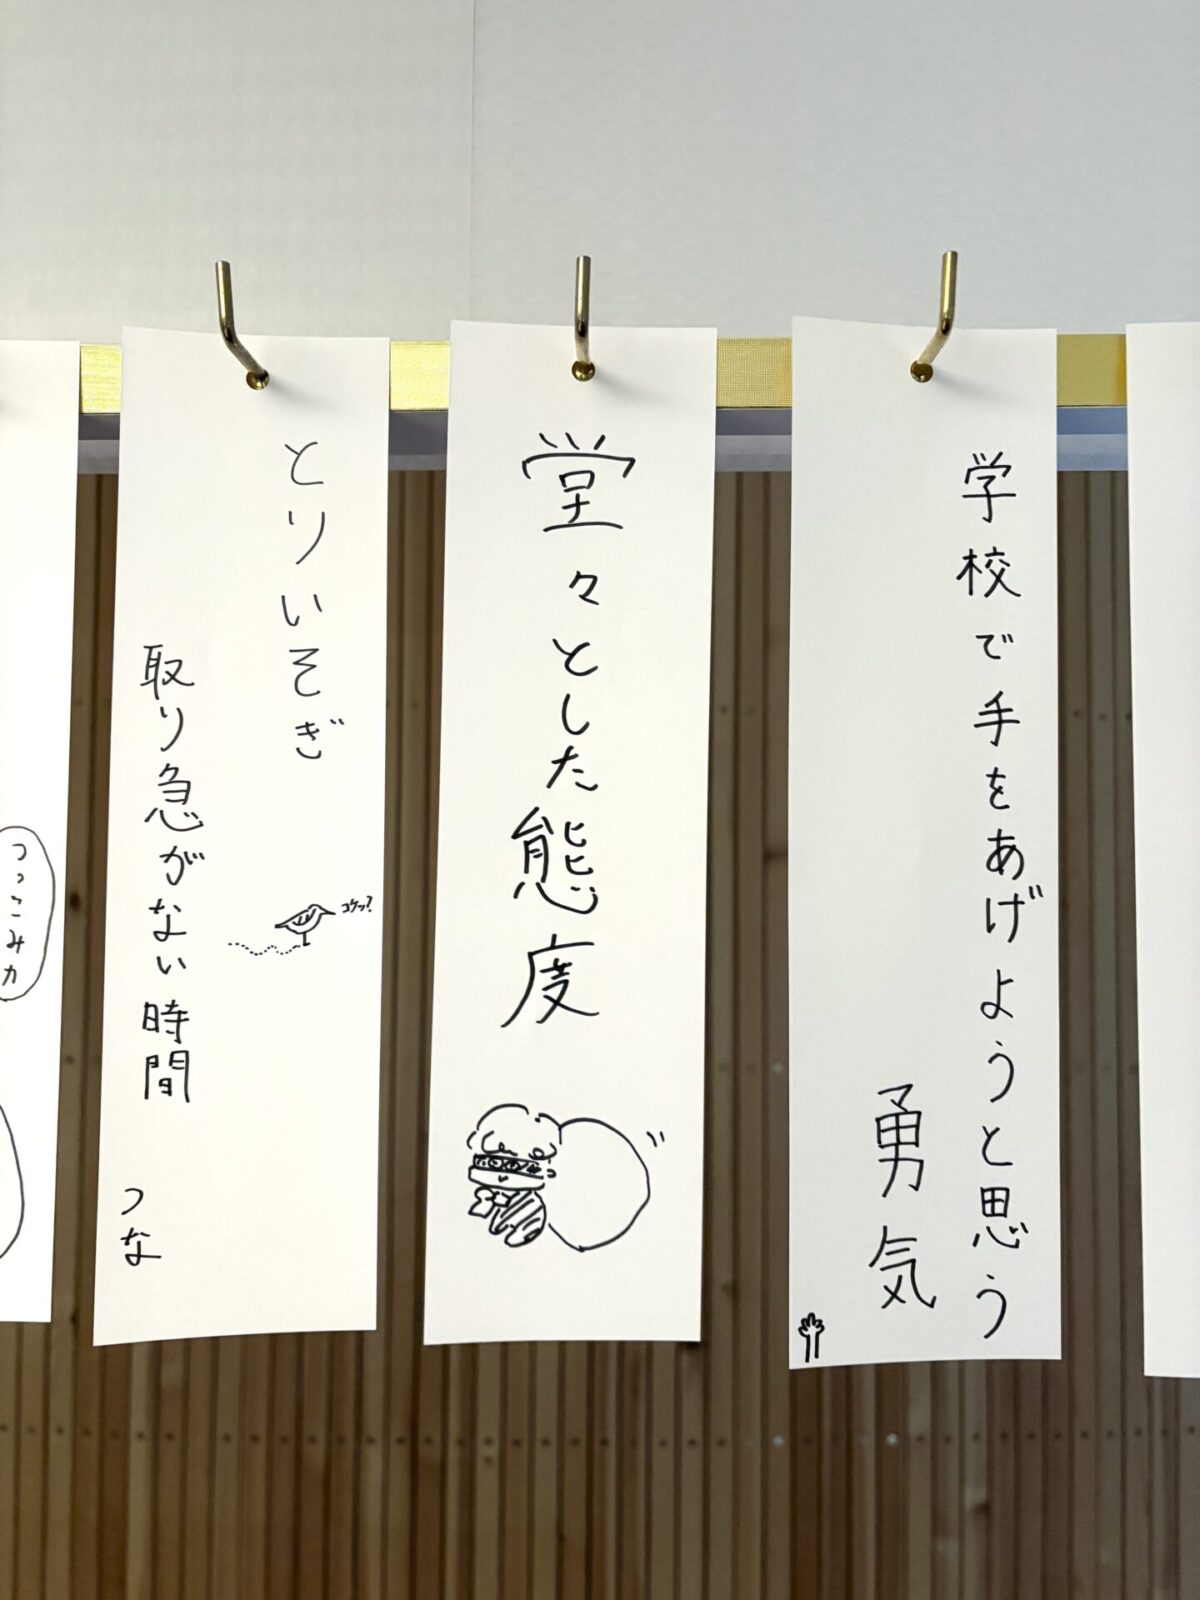 学校で手をあげようと思う
勇気
堂々とした態度
とりいそぎ
コケッ?
取り急がない時間
つな
つっこみカ